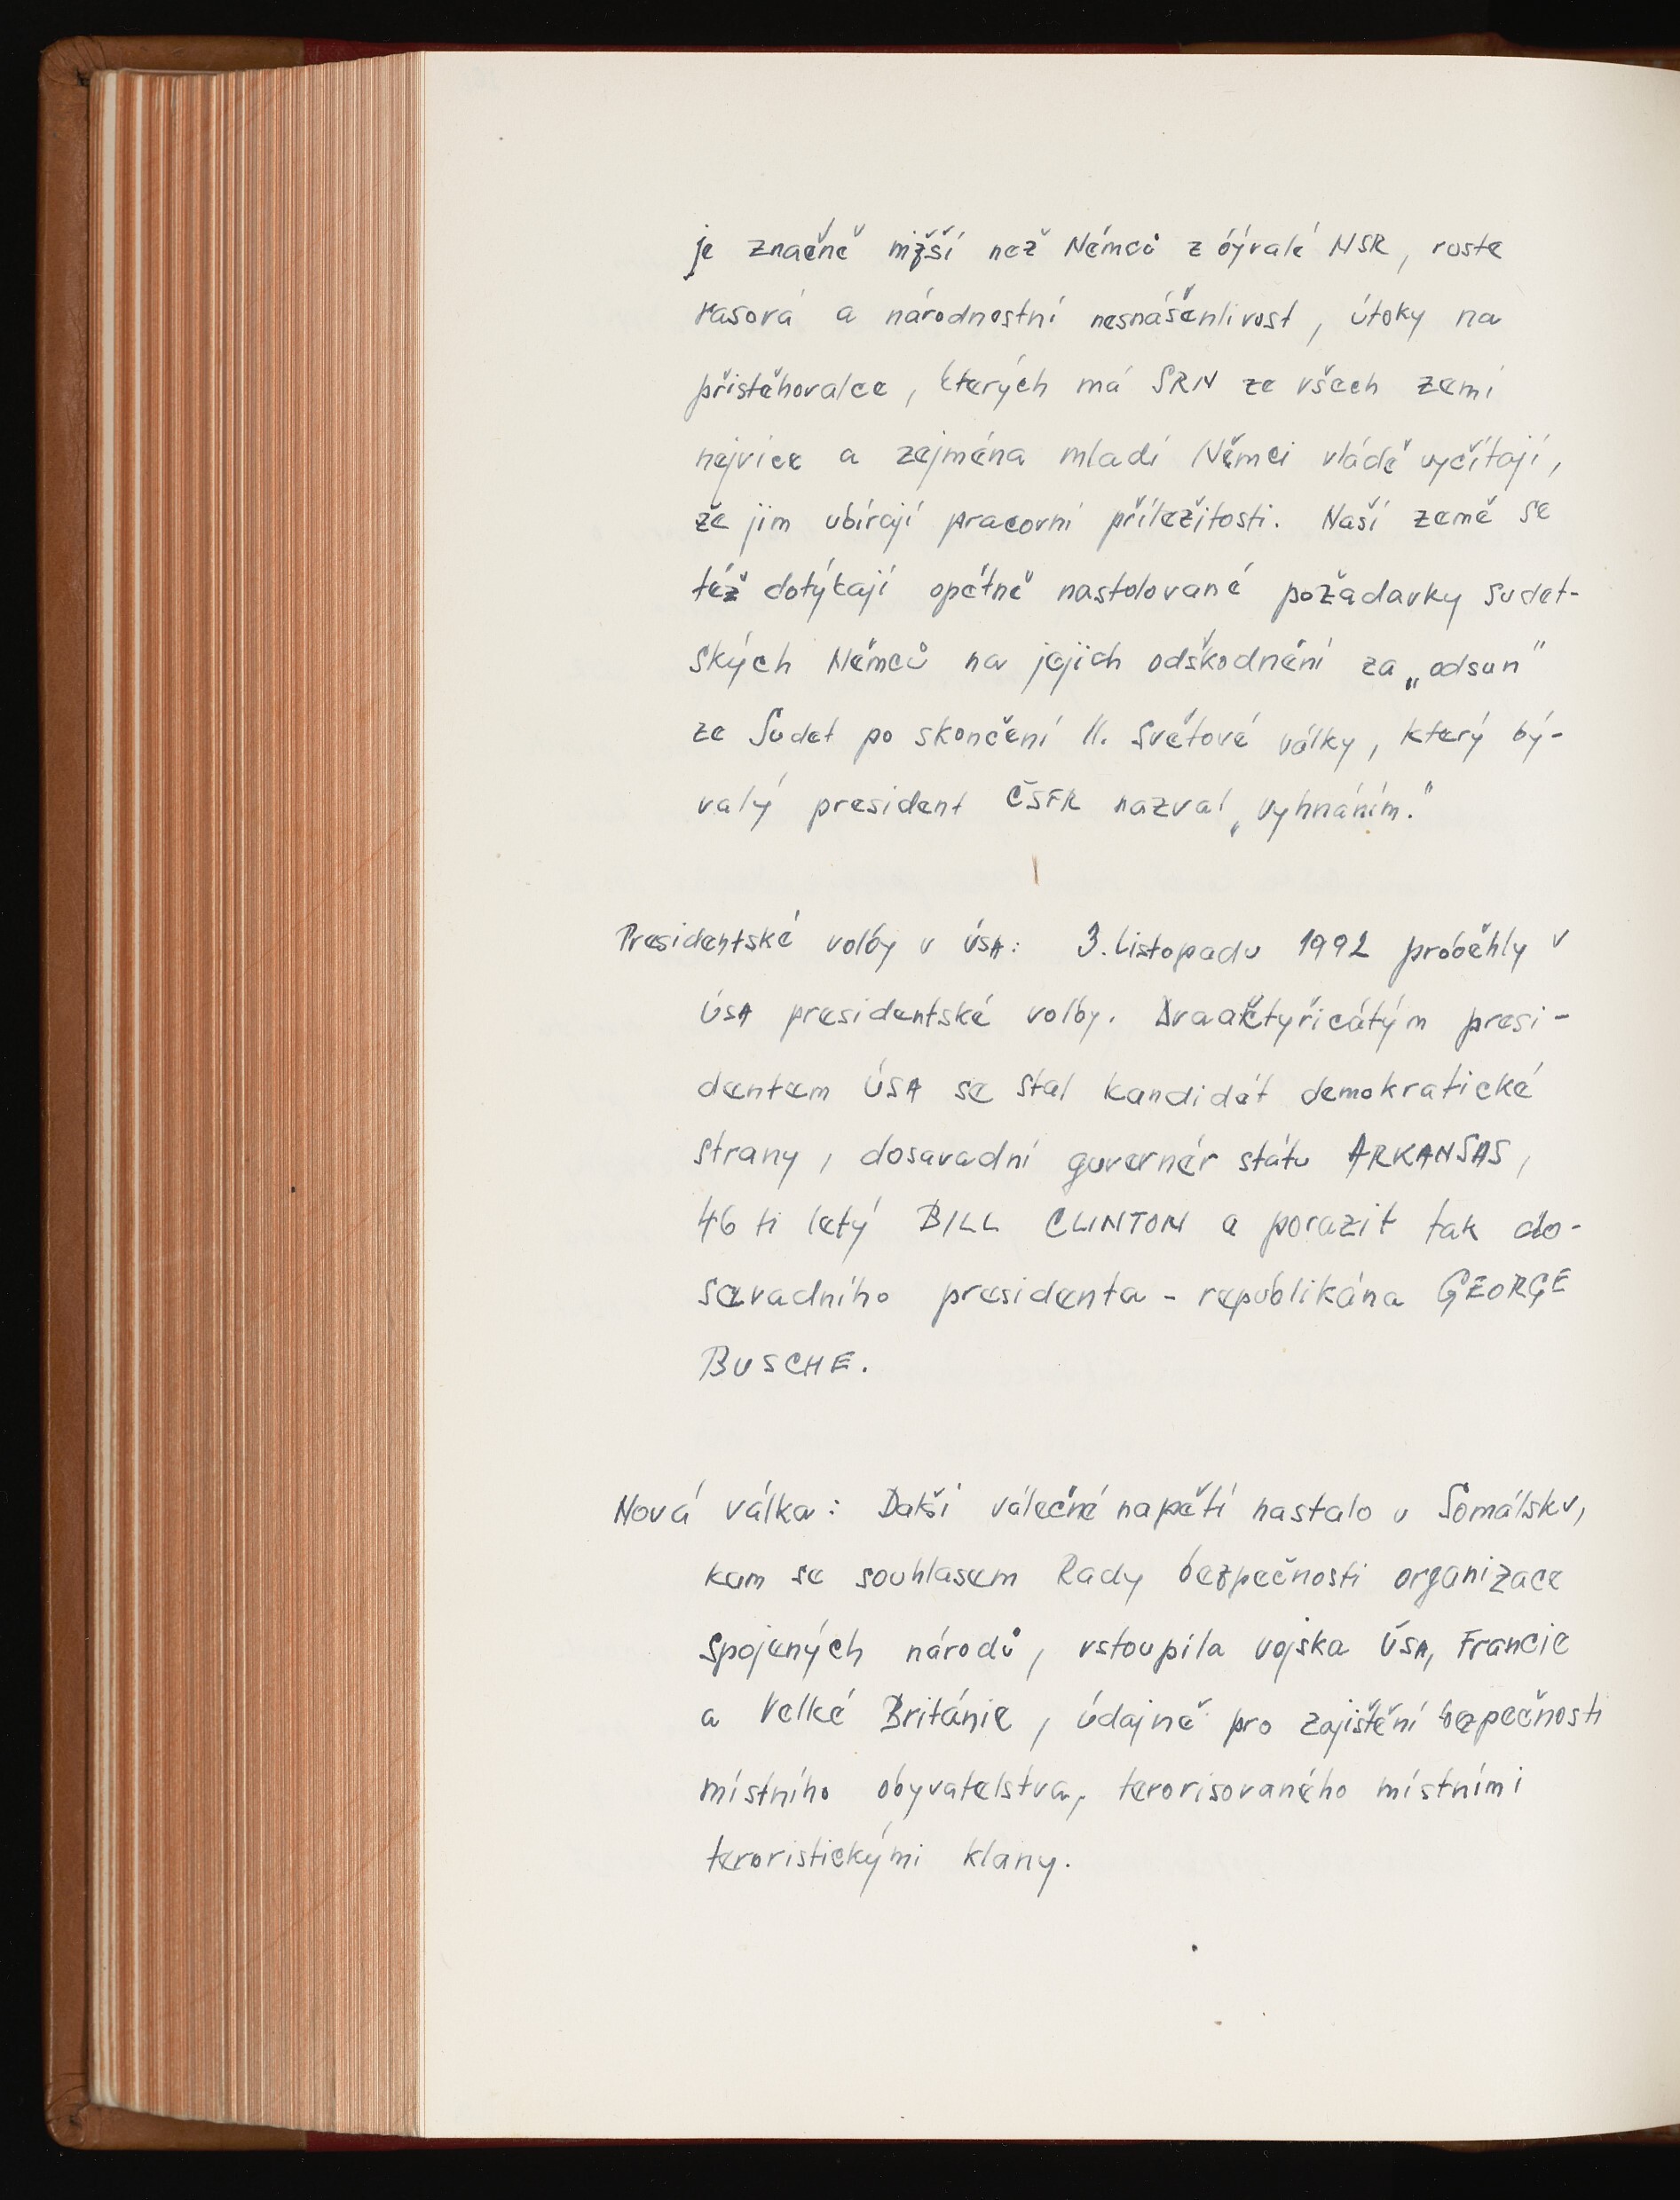 je značně nižší než Němců z bývalé NSR, roste
rasová a národnostní nesnášenlivost, útoky na
přistěhovalce, kterých má SRN ze všech zemí
nejvíce a zejména mladí Němci vládě vyčítají,
že jim ubírají pracovní příležitosti. Naší země se
též dotýkají opětně nastolované požadavky sudet-
ských Němců na jejich odškodnění za „odsun"
ze Sudet po skončení II. světové války, který bý-
valý president ČSFR nazval „vyhnáním."
Presidentské volby v USA: 3. listopadu 1992 proběhly v
USA presidentské volby. Dvaačtyřicátým presi-
dentem USA se stal kandidát demokratické
strany, dosavadní guvernér státu ARKANSAS,
46 ti letý BILL CLINTON a porazil tak do-
savadního presidenta - republikána GEORGE
BUSCHE.
Nová válka: Další válečné napětí nastalo v Somálsku,
kam se souhlasem Rady bezpečnosti organizace
spojených národů, vstoupila vojska USA, Francie
a Velké Británie, údajně pro zajištění bezpečnosti
místního obyvatelstva, terorisovaného místními
teroristickými klany.